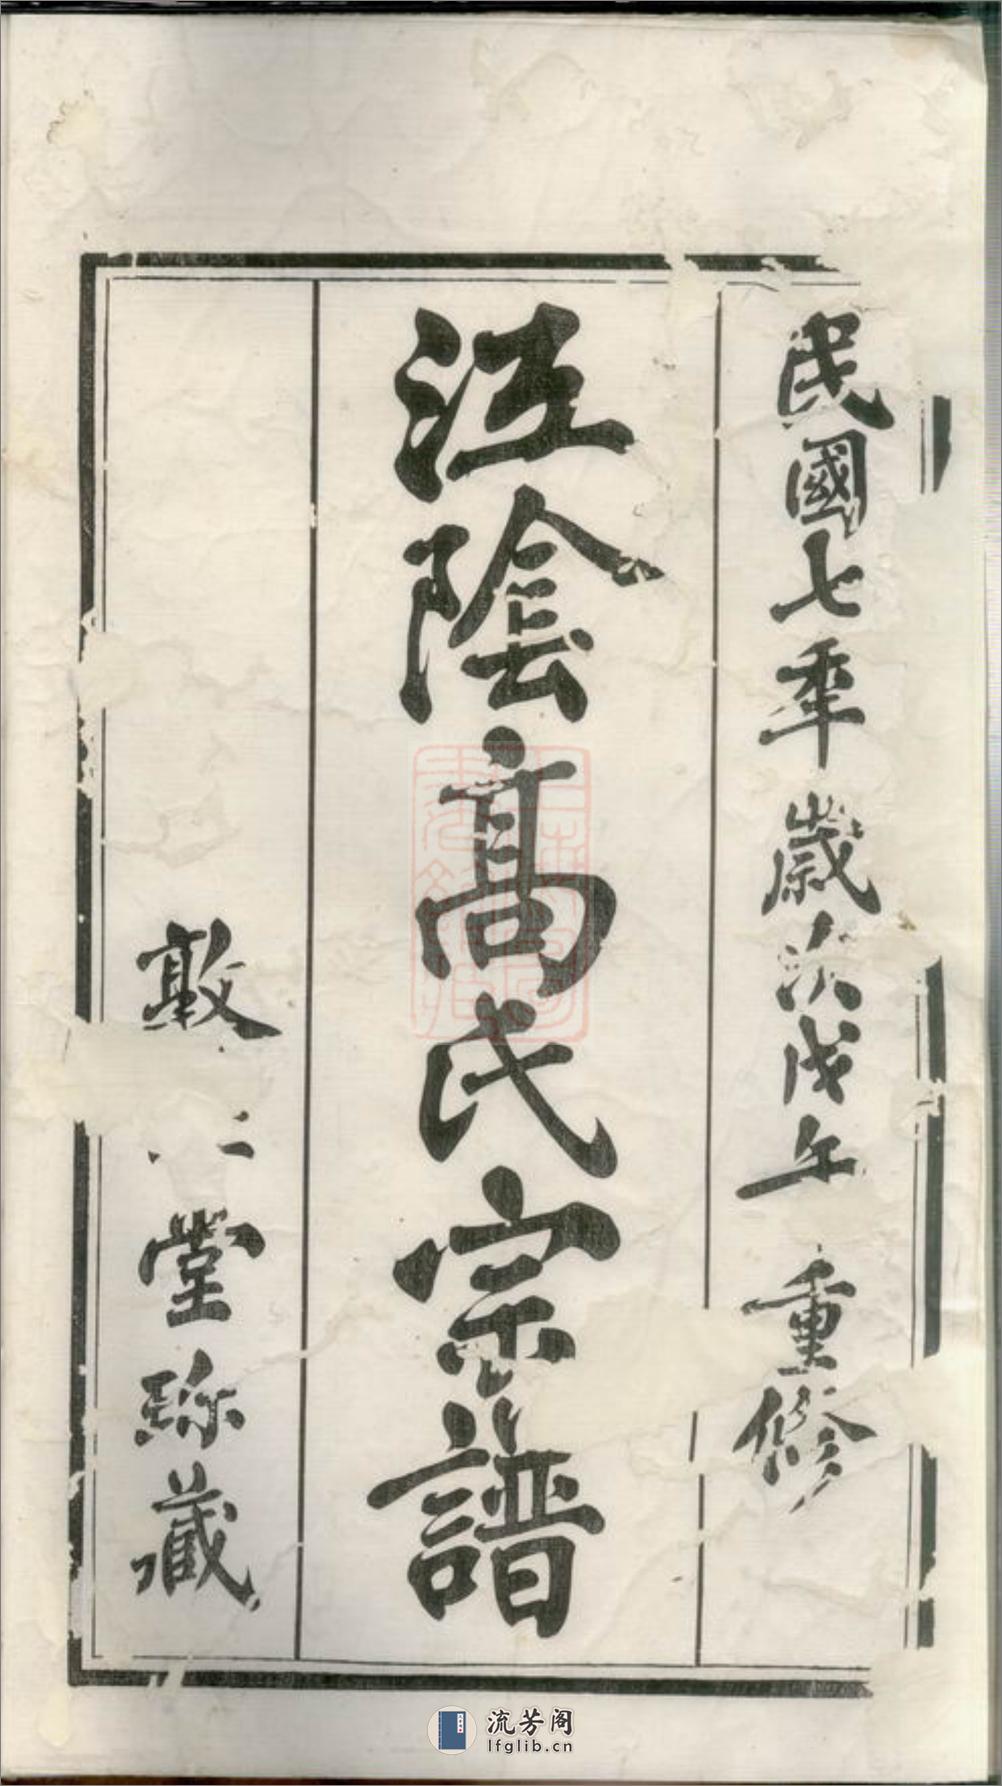 民國七年歲次戊午 重修
江陰高氏宗譜
敦 堂珎藏
流芳阁
lfglib.cn